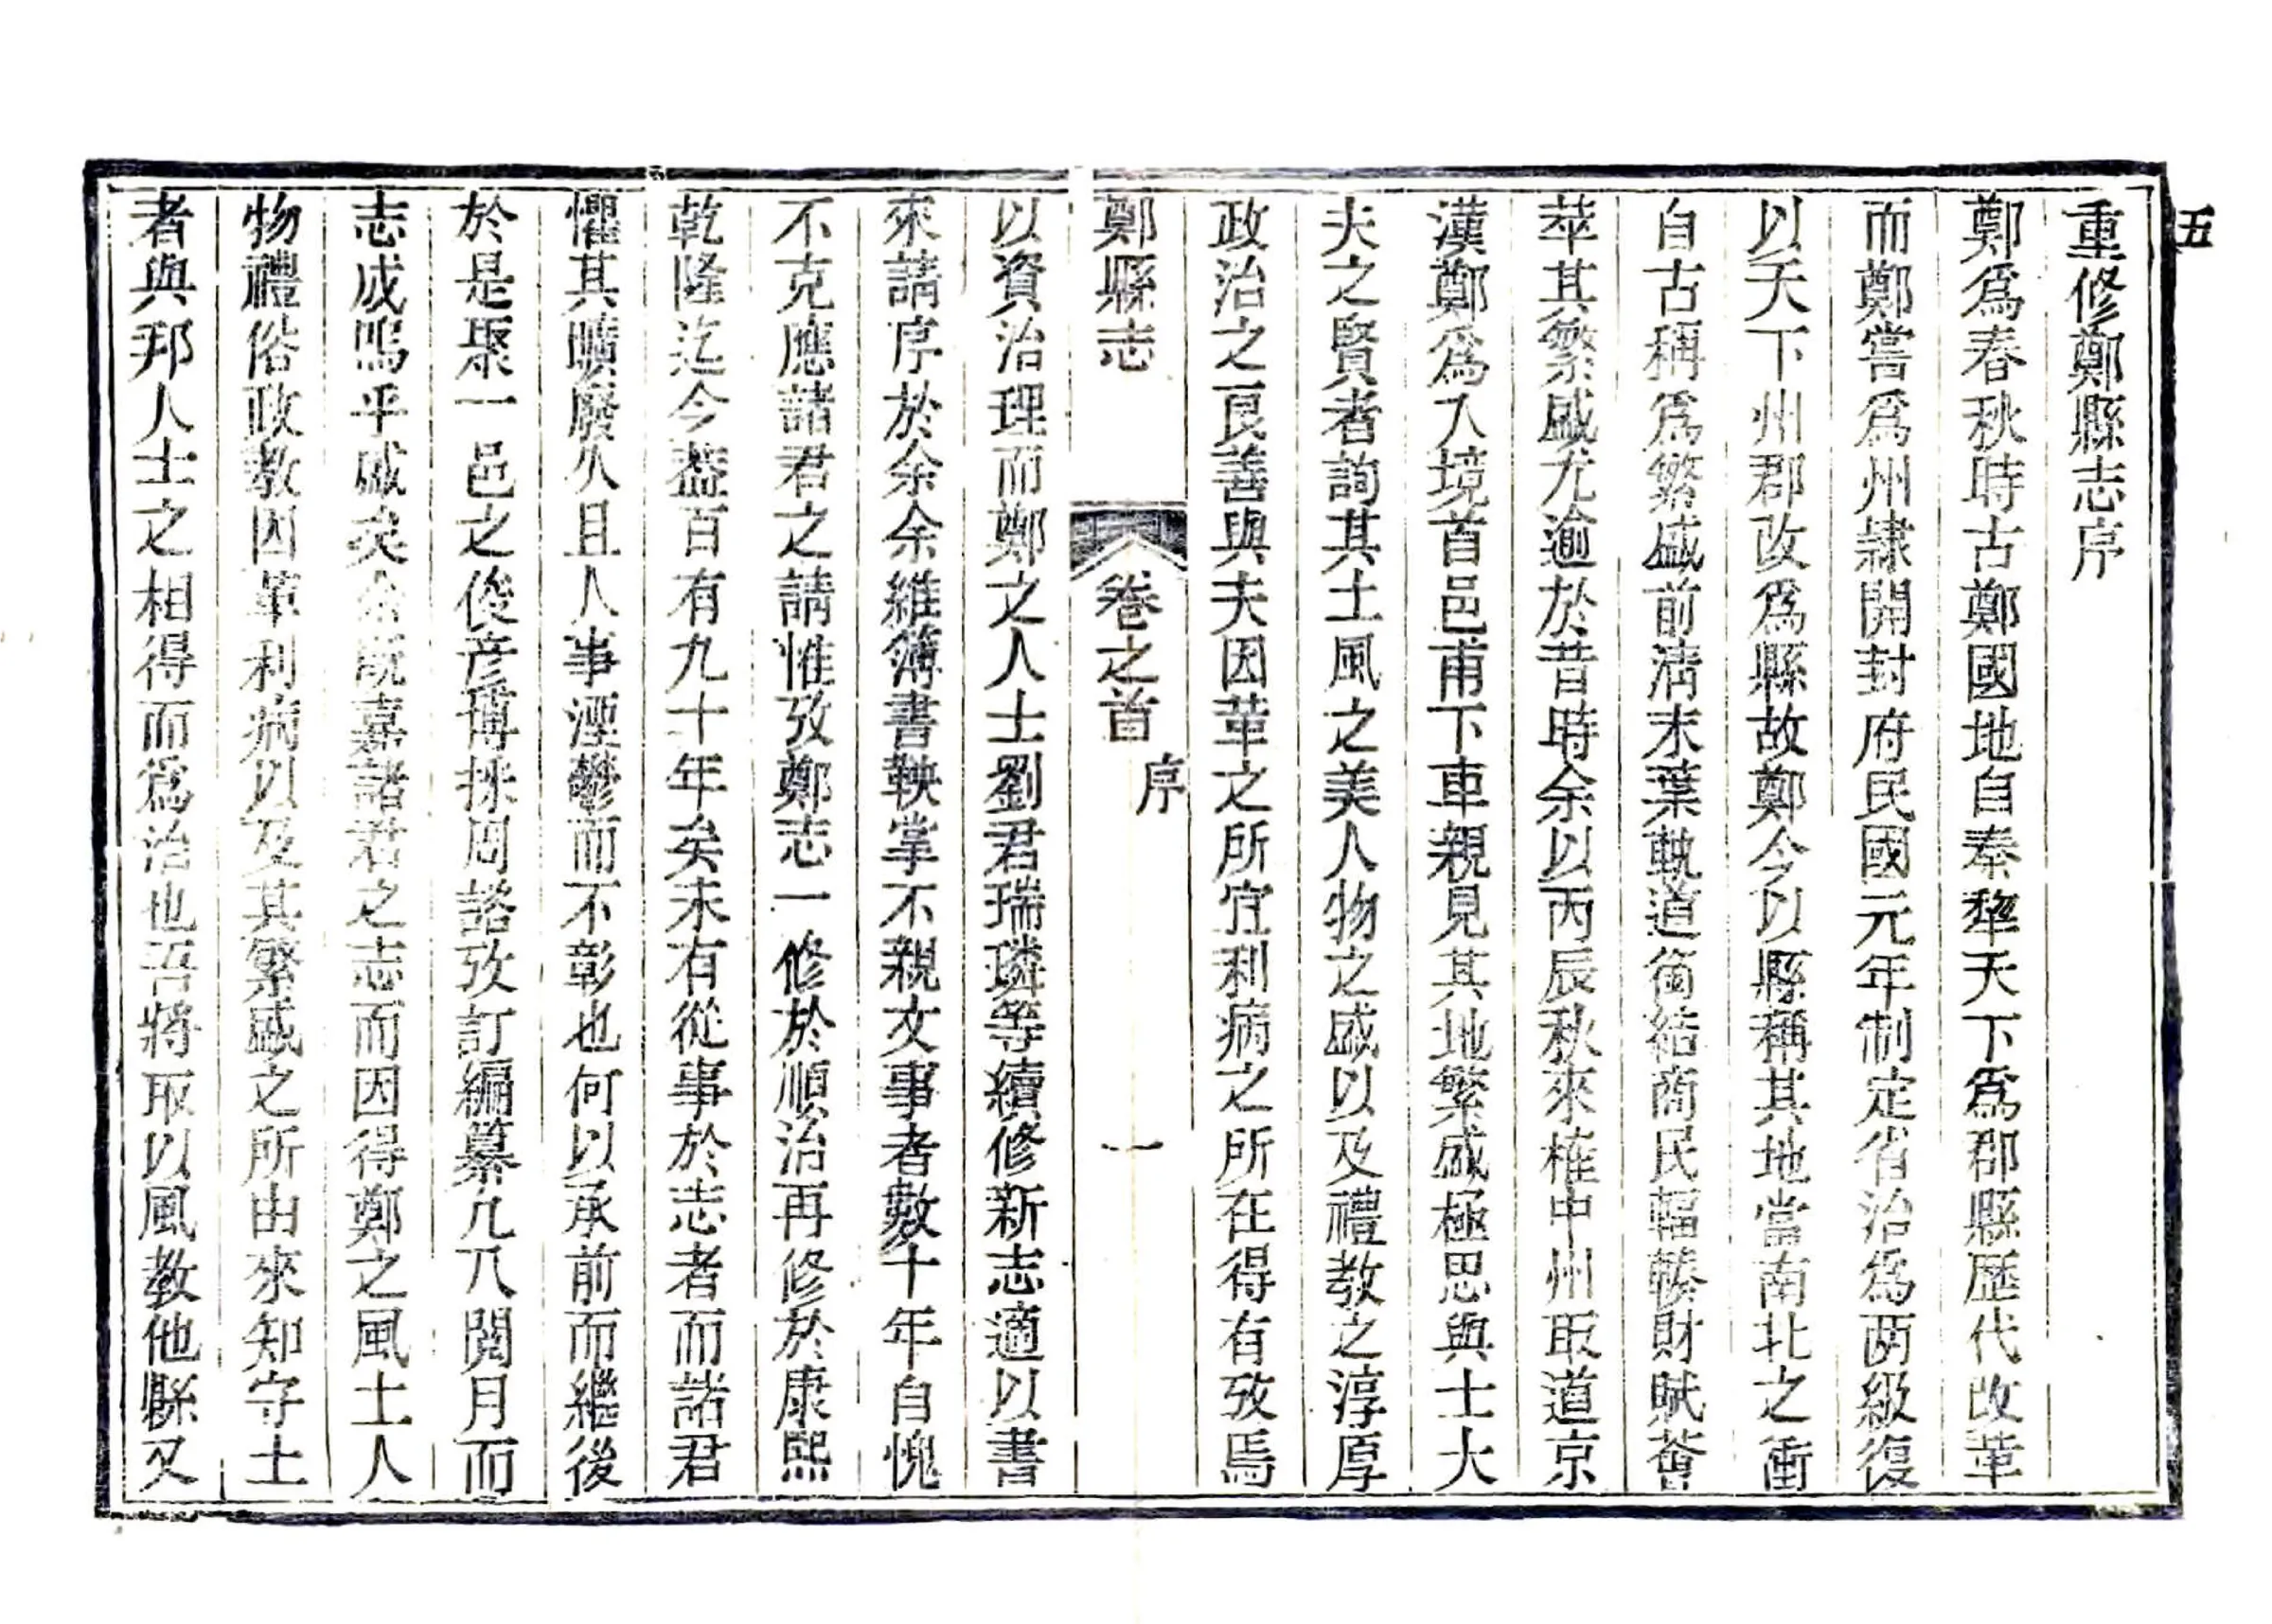 五
重修鄭縣志序
鄭爲春秋時古鄭國地自秦犂天下爲郡縣歷代改革
而鄭嘗爲州隸開封府民國元年制定省治爲兩級復
以天下州郡改爲縣故鄭今以縣稱其地當南北之衝
自古稱爲繁盛前淸末葉軌道箇結商民輻輳財賦薈
萃其繁盛尤逾於昔時余以丙辰秋來榷中州取道京
漢鄭爲入境首邑甫下車親見其地繁盛極思與士大
夫之賢者詢其土風之美人物之盛以及禮敎之淳厚
政治之良善與夫因革之所宜利病之所在得有攷焉
鄭縣志 卷之首 序 一
以資治理而鄭之人士劉君瑞璘等續修新志適以書
來請序於余余維簿書鞅掌不親文事者數十年自愧
不克應諸君之請惟攷鄭志一修於順治再修於康熙
乾隆迄今葢百有九十年矣未有從事於志者而諸君
懼其曠廢久且人事湮鬱而不彰也何以承前而繼後
於是聚一邑之俊彥博採周諮攷訂編纂凡八閱月而
志成嗚乎盛矣余旣嘉諸君之志而因得鄭之風土人
物禮俗政敎因革利病以及其繁盛之所由來知守土
者與邦人士之相得而爲治也吾將取以風敎他縣又